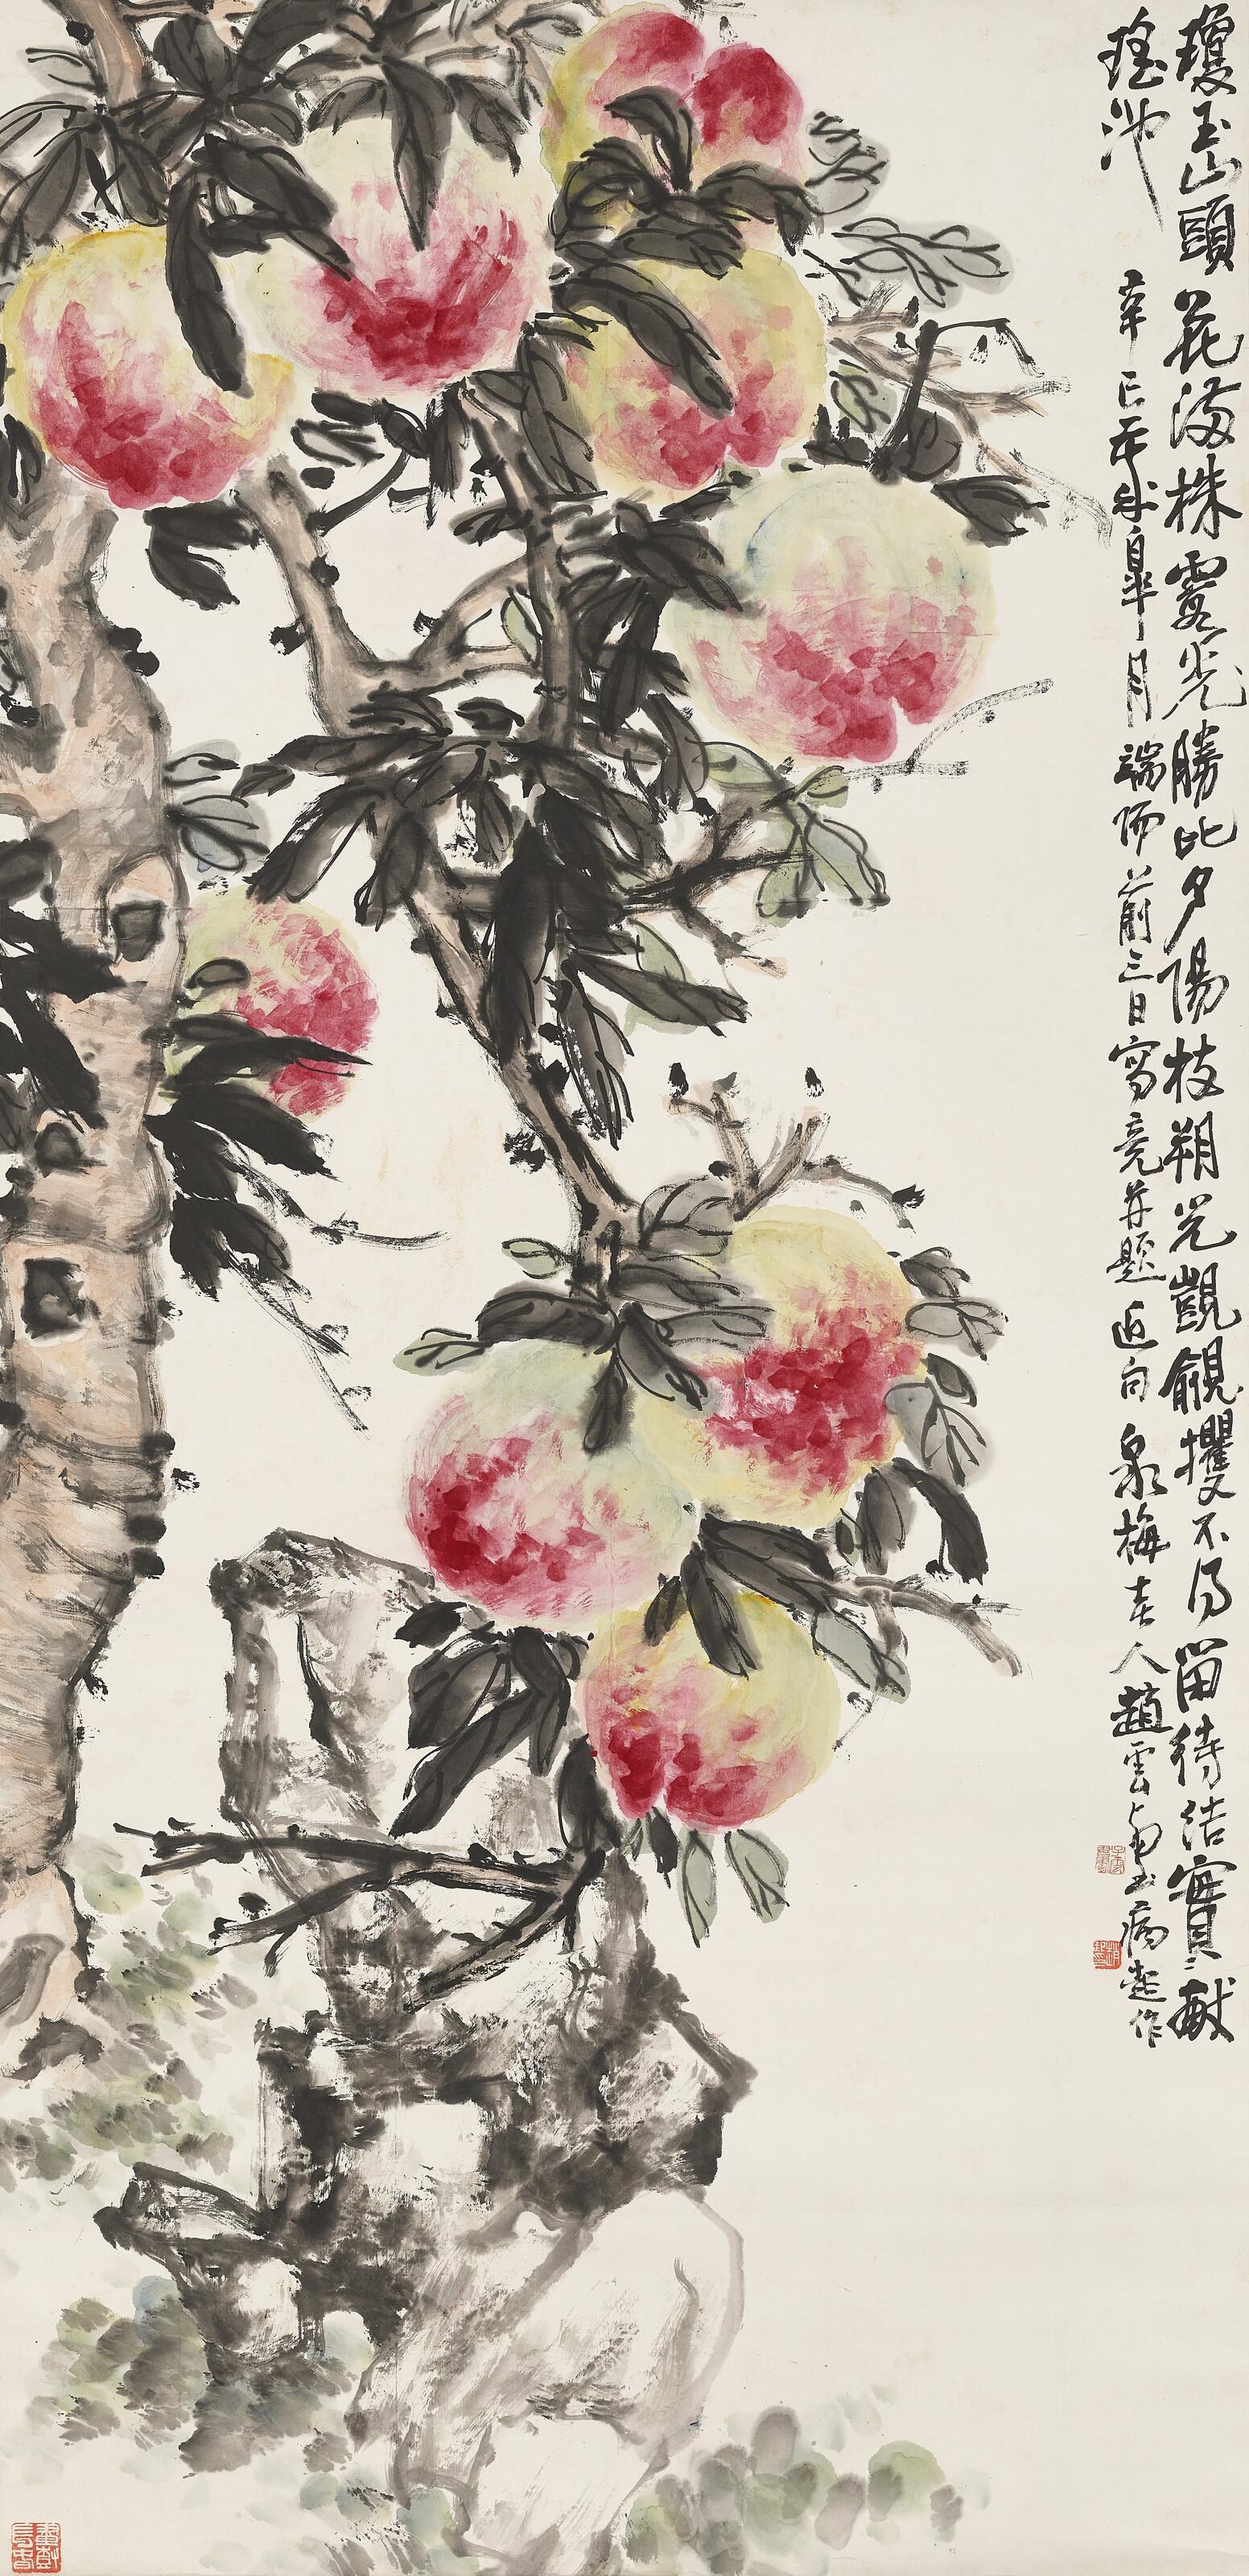 瓊玉山頭花滿株霞光勝比夕陽枝朔兒覬覦攫不得留待結實獻
瑤池
辛巳年皋月端陽前三日寫竟并題近向泉梅老人趙雲壑病起作